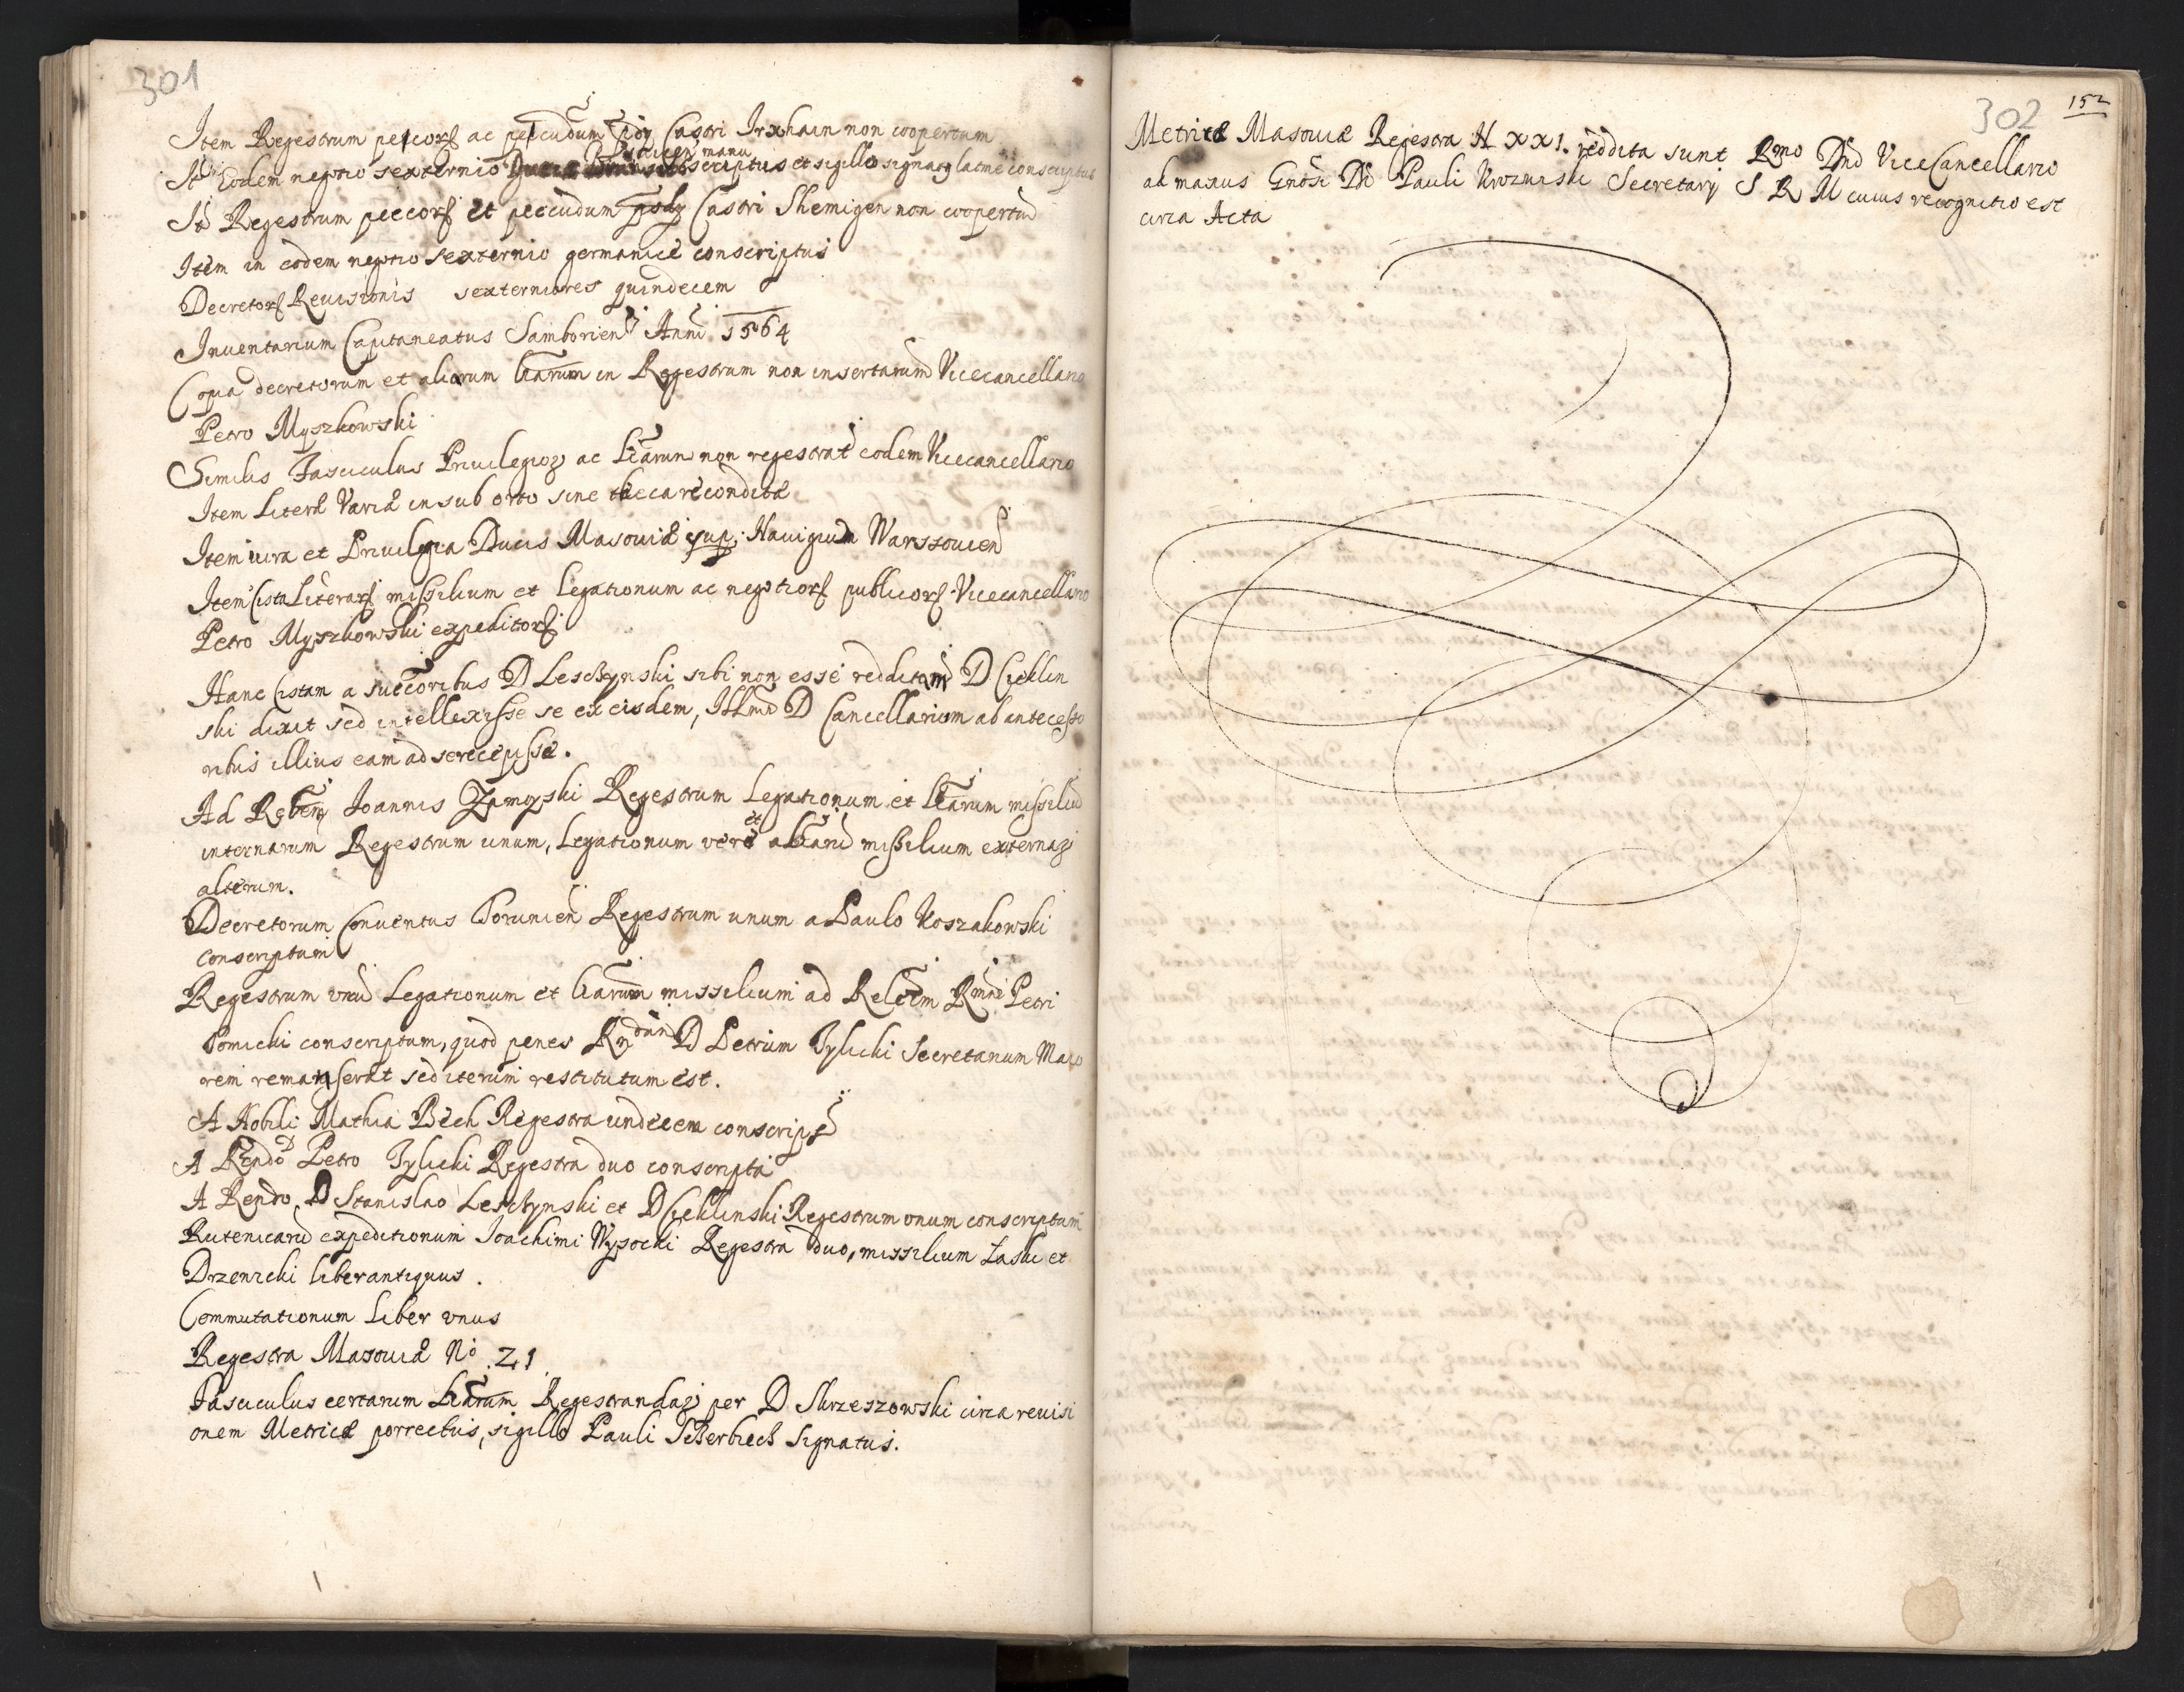 301
Item Regestrum peccorũ ac peccudum Castri Irxhain non coopertum
Itẽ Eodem neptio sexternio manu subscriptus et sigillo signatq latine conscriptus
Itẽ Regestrum peccorũ et peccudum Castri Shemigen non coopertũ
Item in eodem neptio sexternio germanice conscriptus
Decretorũ Reuisionis sexterniores quindecem
Inuentarium Capitaneatus Samborień Anni 1564
Copia decretorum et aliarum lrarum in Regestrum non insertarum Vicecancellario
Petro Myszkowski
Similis Fasciculus Priuilegioꝝ ac lrarum non regestrat eodem Vicecancellario
Item Literæ Variæ in sub orto sine theca recondite
Item iura et Priuilegia Ducis Masouiæ sup. Nauigium Warssouień
Item Cista Literarũ missilium et Legationum ac negotiorũ publicorũ Vicecancellario
Petro Myszkowski expeditorũ
Hanc Cistam a succoribus D Lesczynski sibi non esse redditam D Cieklin
ski dixit sed intellexisse se ex eisdem, Illmũ D Cancellarium ab antecesso
ribus illius eam ad se recepisse.
Ad Relem Joannis Zamoyski Regestrum Legationum et lrarum missiliũ
internarum Regestrum unum, Legationum vero et lrarũ missilium externaꝝ
alterum.
Decretorum Conuentus Torunień Regestrum unum a Paulo Koszakowski
conscriptum
Regestrum unũ Legationum et lrarum missilium ad Relem Rmni Petri
Tomicki conscriptum, quod penes Rndum D Petrum Tylicki Secretarium Maio
rem remanserat sed iterum restitutum est.
A Nobili Mathia Bech Regestra undecem conscript
A Rendo D Petro Tylicki Regestra duo conscripta
A Rendo D Stanislao Lesczynski et D Cieklinski Regestrum unum conscriptum
Rutenicarũ expeditionum Joachimi Wysocki Regestra duo, missilium Laski et
Drzenicki liber antiquus.
Commutationum Liber vnus
Regestra Masouiæ No 21
Fasciculus certarum lrarum Regestrandaꝝ per D Skrzeszowski circa reuisi
onem Metricæ porrectus, sigillo Pauli Sczerbich signatus.
302 152
Metricæ Masouiæ Regestra N XXI. reddita sunt Rmo Dno ViceCancellario
ad manus Gnosi Dni Pauli Secretarij S R M cuius recognitio est
circa Acta